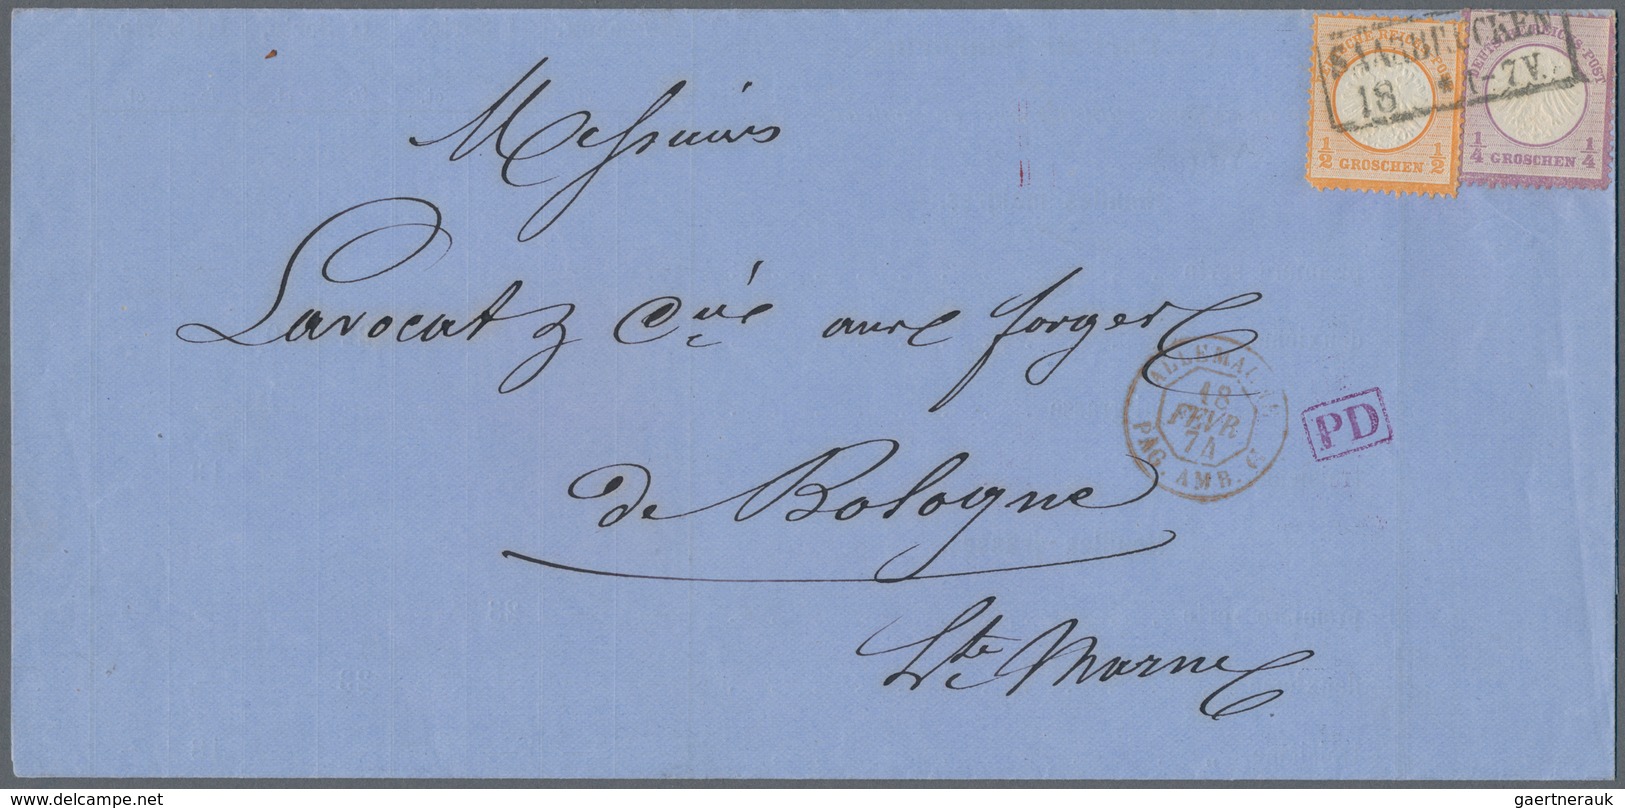 SAARBRÜCKEN
18 * 1-7V.
DEUTSCHE REICHS-POST
1/2 GROSCHEN 1/2
DEUTSCHE REICHS-POST
1/4 GROSCHEN 1/4
Messieurs
Lavocat & Cie aux forges
ALLEMAGNE
18
FEVR
74
PAG. AMB. C
PD
de Bologne
Hte Marne
www.delcampe.net
gaertnerauk